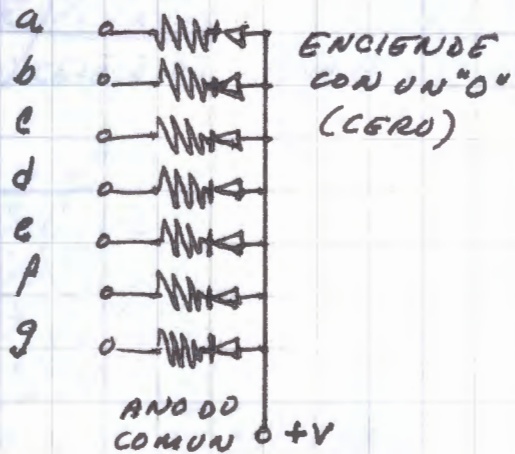 a
b
c
d
e
f
g
ENCIENDE
CON UN "0"
(CERO)
ANODO
COMUN +V